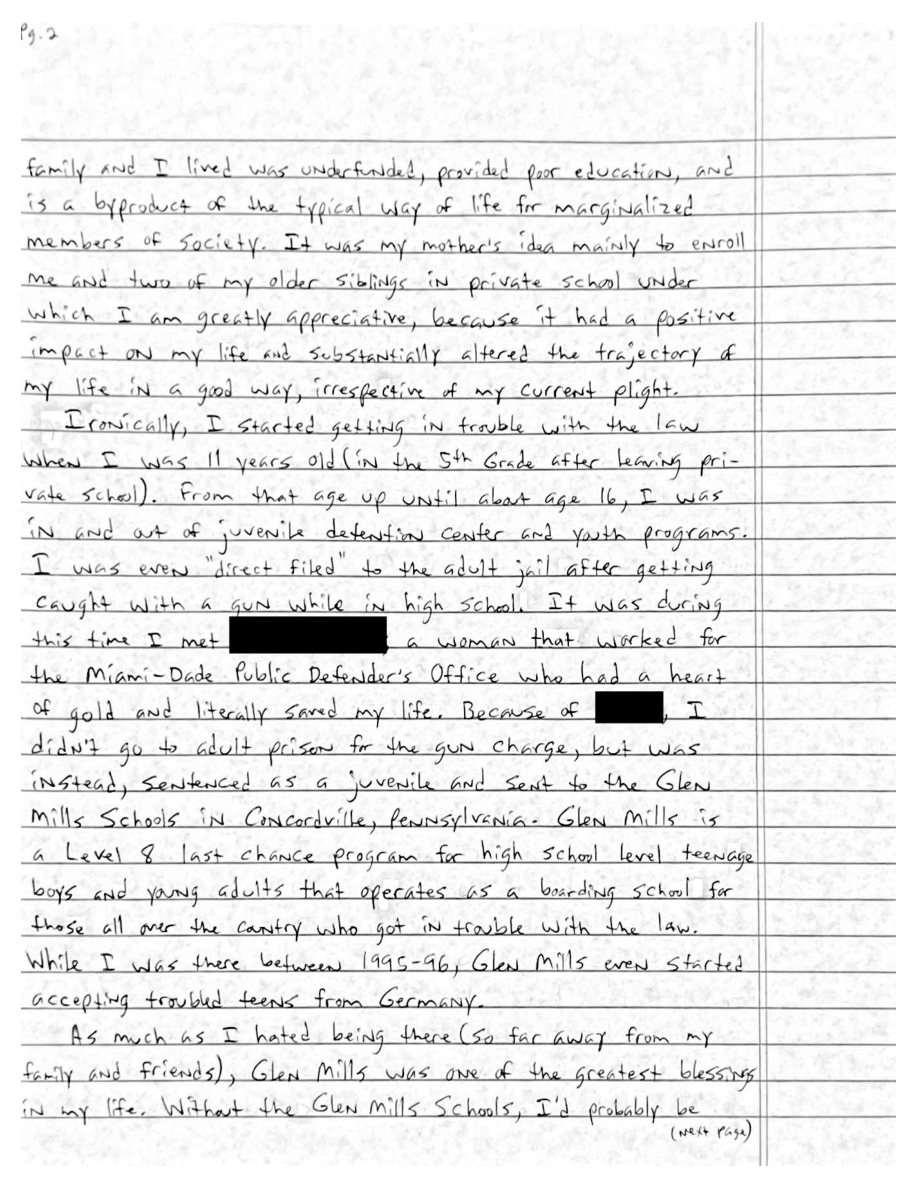 Pg. 2
family and I lived was underfunded, provided poor education, and
is a byproduct of the typical way of life for marginalized
members of society. It was my mother's idea mainly to enroll
me and two of my older siblings in private school under
which I am greatly appreciative, because it had a positive
impact on my life and substantially altered the trajectory of
my life in a good way, irrespective of my current plight.
Ironically, I started getting in trouble with the law
when I was 11 years old (in the 5th Grade after leaving pri-
vate school). From that age up until about age 16, I was
in and out of juvenile detention center and youth programs.
I was even "direct filed" to the adult jail after getting
caught with a gun while in high school. It was during
this time I met a woman that worked for
the Miami-Dade Public Defender's Office who had a heart
of gold and literally saved my life. Because of , I
didn't go to adult prison for the gun charge, but was
instead, sentenced as a juvenile and sent to the Glen
Mills Schools in Concordville, Pennsylvania. Glen Mills is
a Level 8 last chance program for high school level teenage
boys and young adults that operates as a boarding school for
those all over the country who got in trouble with the law.
While I was there between 1995-96, Glen Mills even started
accepting troubled teens from Germany.
As much as I hated being there (so far away from my
family and friends), Glen Mills was one of the greatest blessings
in my life. Without the Glen Mills Schools, I'd probably be
(Next Page)